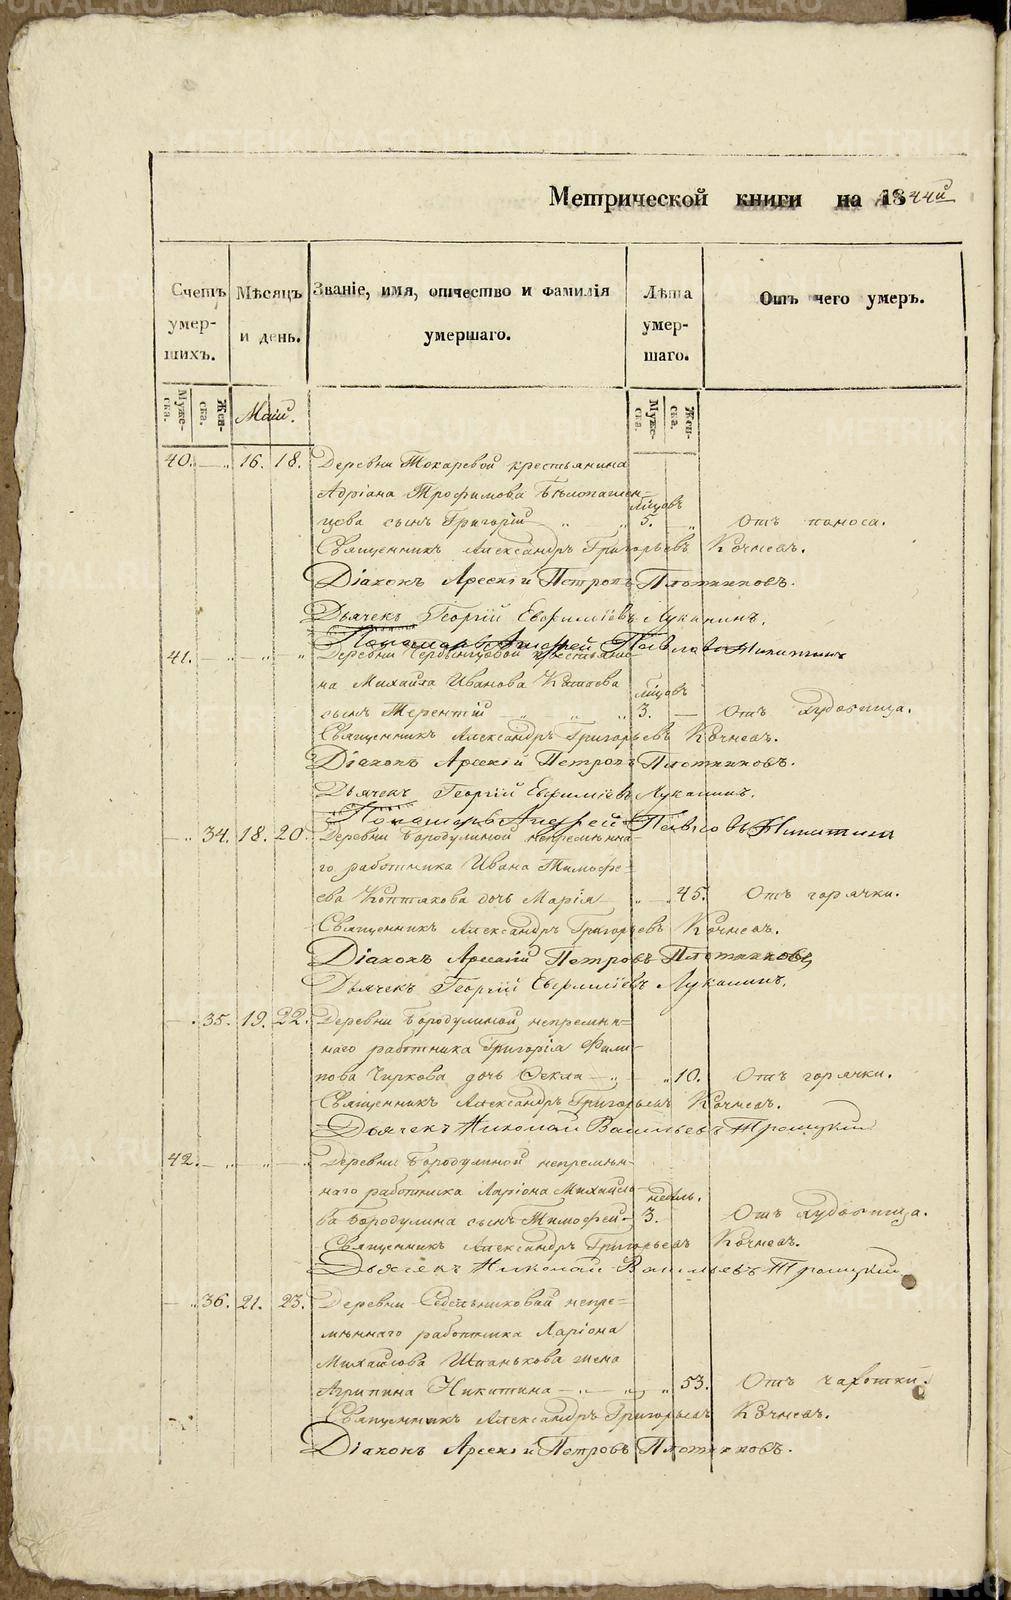 METRIKI.GASU-URAL.RU
Метрической книги на 1844й
Счетъ умер-шихъ.
Мѣсяцъ и день.
Званіе, имя, отчество и фамилія умершаго.
Лѣта умер-шаго.
Отъ чего умеръ.
Муже-ска. Жен-ска. Маій. Муже-ска. Жен-ска.
40. — „ 16. 18. Деревни Токаревой крестьянина
Адріана Трофимова Бѣлоташен-
цова сынъ Григорій „ „ мѣсцовъ 5. „ Отъ поноса.
Священникъ Александръ Григорьевъ Кочневъ.
Діаконъ Арсеній Петровъ Плотниковъ.
Дьячекъ Георгій Евфиміевъ Луканинъ.
Пономарь Андрей Павловъ Никитинъ
41. — „ — „ — „ Деревни крестьяни-
на Михаила Иванова
сынъ Терентій — „ „ „ мѣсцовъ 3. — Отъ
Священникъ Александръ Григорьевъ Кочневъ.
Діаконъ Арсеній Петровъ Плотниковъ.
Дьячекъ Георгій Евфиміевъ Луканинъ.
Пономарь Андрей Павловъ Никитинъ
— „ 34. 18. 20. Деревни Бородулиной непремѣнна-
го работника Ивана Тимофе-
ева Коптякова дочь Марія „ — 45. Отъ горячки.
Священникъ Александръ Григорьевъ Кочневъ.
Діаконъ Арсеній Петровъ Плотниковъ
Дьячекъ Георгій Евфиміевъ Луканинъ.
— „ 35. 19. 22. Деревни Бородулиной непремѣн-
наго работника Григорія Фили-
пова Чиркова дочь Ѳекла — „ — „ 10. Отъ горячки.
Священникъ Александръ Григорьевъ Кочневъ.
Дьячекъ Николай Васильевъ Троицкій
42. — „ — „ — „ Деревни Бородулиной непремѣн-
наго работника Ларіона Михайло-
ва Бородулина сынъ Тимофей — недѣль. 3. Отъ
Священникъ Александръ Григорьевъ Кочневъ.
Дьячекъ Николай Васильевъ Троицкій
— „ 36. 21. 23. Деревни Седельниковой непре-
мѣннаго работника Ларіона
Михайлова жена
Агрипина Никитина — „ — „ „ 53. Отъ чахотки.
Священникъ Александръ Григорьевъ Кочневъ.
Діаконъ Арсеній Петровъ Плотниковъ.